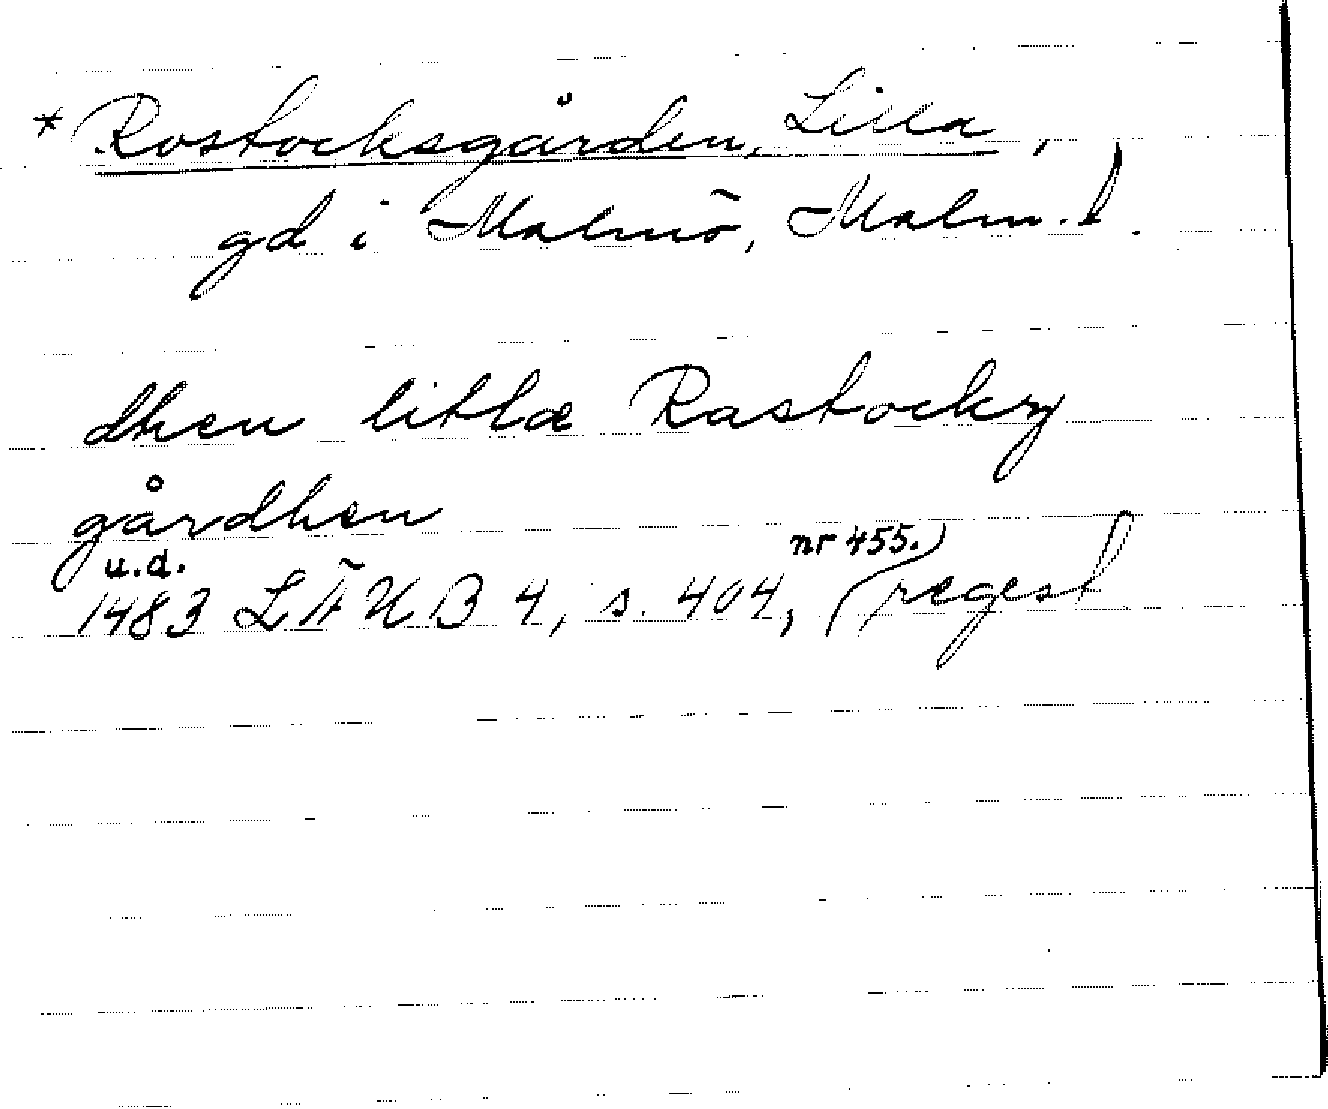 * Rostocksgården, Lilla,
gd i Malmö, Malm. l.
dhen litlæ Rastockz
gårdhen
u.d. nr 455.)
1483 LÄUB 4, s. 404, (regest